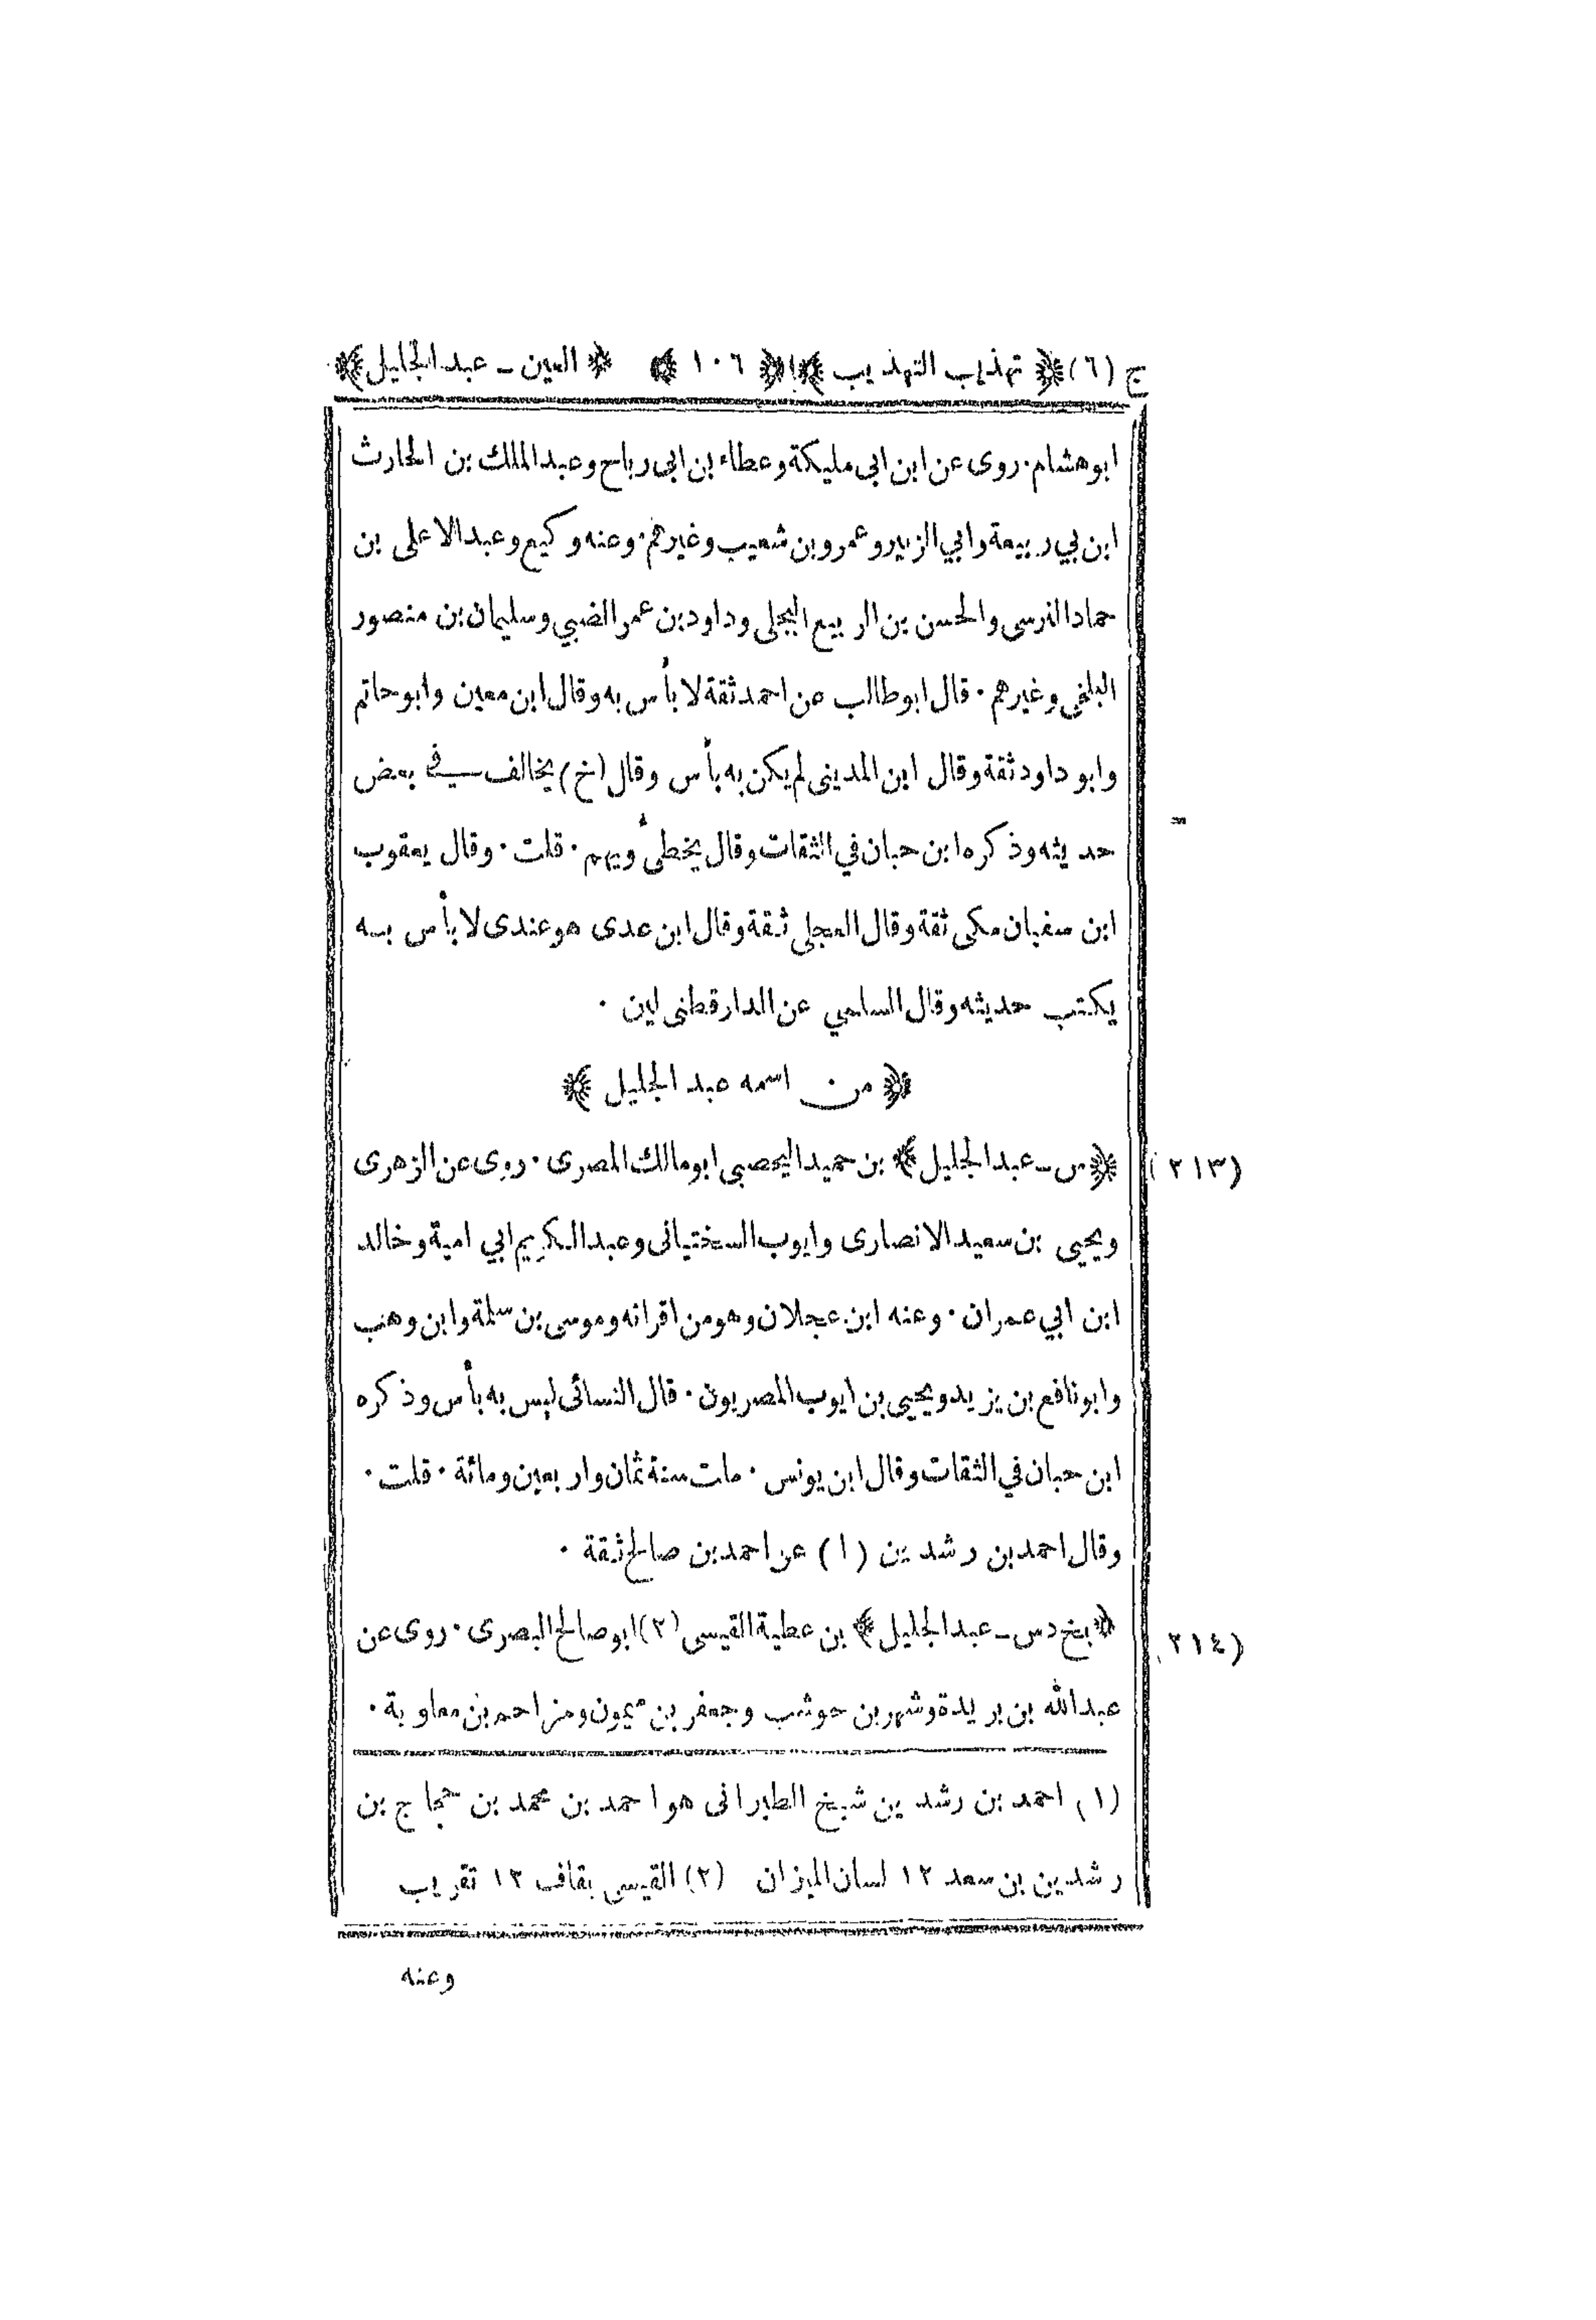 ج (٦) ﴿ تهذيب التهذيب ﴾ ﴿ ١٠٦ ﴾ ﴿ العين ـ عبد الجليل ﴾
ابوهشام · روى عن ابن ابى مليكة وعطاء بن ابى رباح وعبد الملك بن الحارث
ابن بي ربيعة وابي الزبير وعمرو بن شعيب وغيرهم · وعنه وكيع وعبد الاعلى بن
حماد النرسى والحسن بن الربيع البجلى وداود بن عمر الضبي وسليمان بن منصور
البلخي وغيرهم · قال ابوطالب عن احمد ثقة لا بأس به وقال ابن معين وابو حاتم
وابو داود ثقة وقال ابن المدينى لم يكن به بأس وقال (خ) يخالف في بعض
حديثه وذكره ابن حبان في الثقات وقال يخطئ ويهم · قلت · وقال يعقوب
ابن سفيان مكى ثقة وقال العجلي ثقة وقال ابن عدى هو عندى لا بأس به
يكتب حديثه وقال السلمي عن الدارقطنى لين ·
﴿ من اسمه عبد الجليل ﴾
(٢١٣) ﴿ س ـ عبد الجليل ﴾ بن حميد اليحصبى ابومالك المصرى · روى عن الزهرى
ويحيى بن سعيد الانصارى وايوب السختيانى وعبد الكريم ابي امية وخالد
ابن ابي عمران · وعنه ابن عجلان وهو من اقرانه وموسى بن سلمة وابن وهب
وابو نافع بن يزيد ويحيى بن ايوب المصريون · قال النسائى ليس به بأس وذكره
ابن حبان في الثقات وقال ابن يونس · مات سنة ثمان واربعين ومائة · قلت ·
وقال احمد بن رشدين (١) عن احمد بن صالح ثقة ·
(٢١٤) ﴿ بخ د س ـ عبد الجليل ﴾ بن عطية القيسى (٢) ابو صالح البصرى · روى عن
عبد الله بن بريدة وشهر بن حوشب وجعفر بن ميمون ومزاحم بن معاوية ·
(١) احمد بن رشدين شيخ الطبرانى هو احمد بن محمد بن حجاج بن
رشدين بن سعد ١٢ لسان الميزان (٢) القيسى بقاف ١٢ تقريب
وعنه